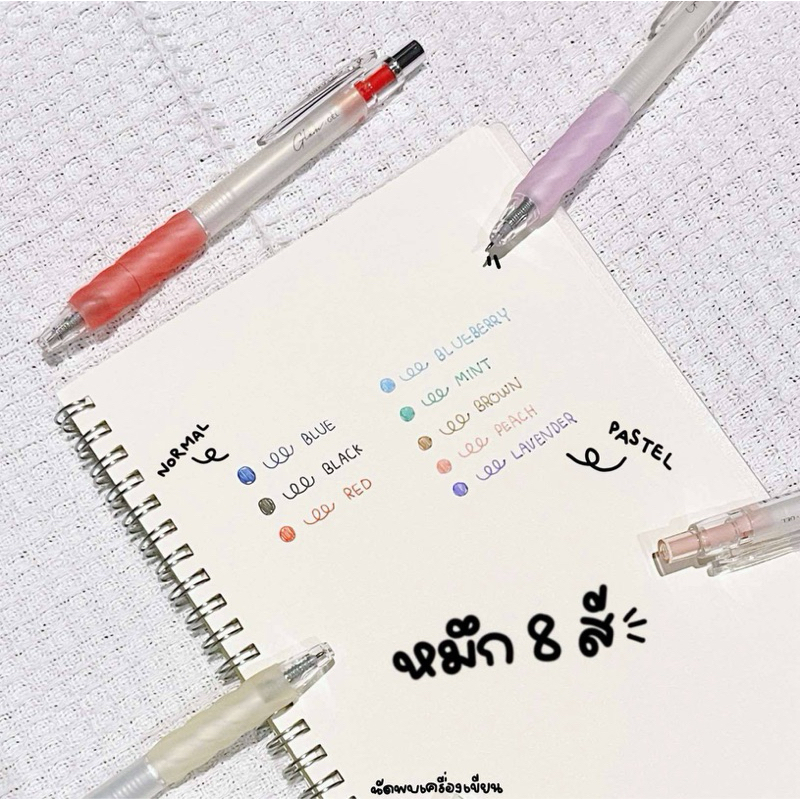 Glow GEL
BLUEBERRY
MINT
BROWN
PEACH
LAVENDER
PASTEL
NORMAL
BLUE
BLACK
RED
หมึก 8 สี
นัดพบเครื่องเขียน